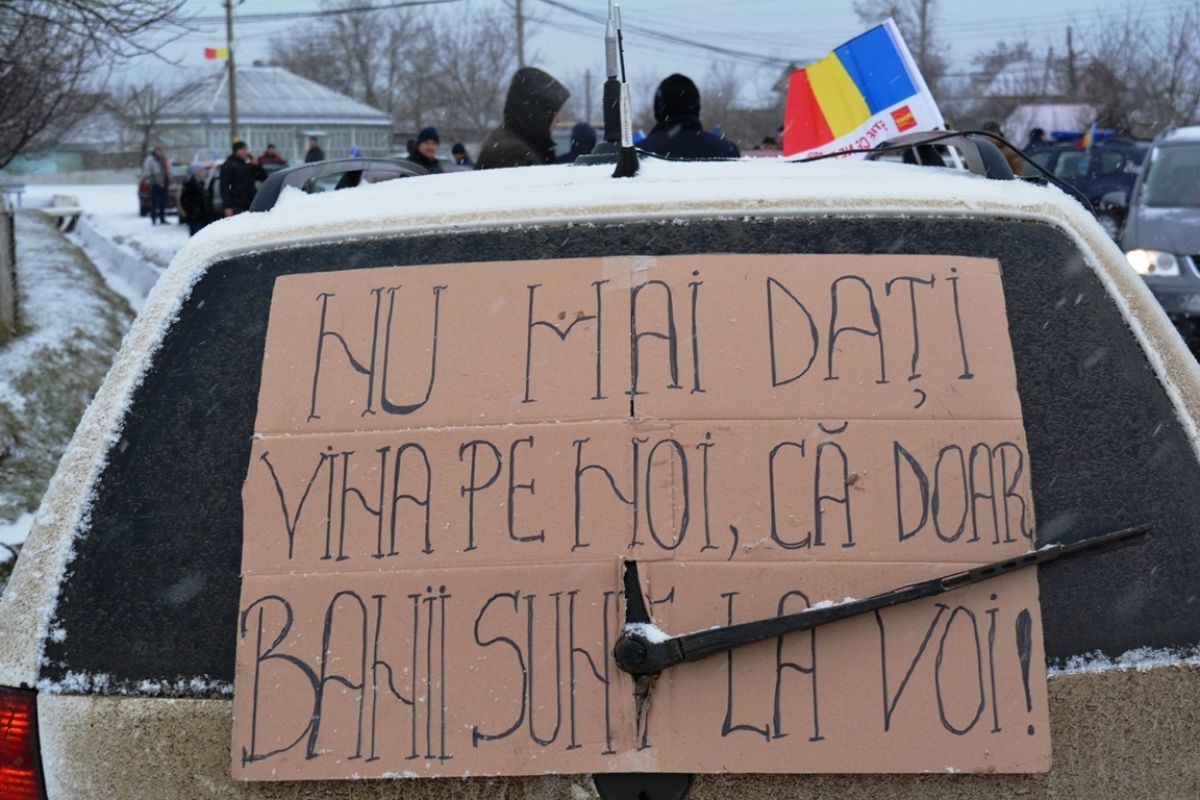 NU MAI DAȚI
VINA PE NOI, CĂ DOAR
BANII SUNT LA VOI!